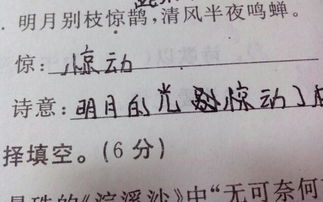 明月别枝惊鹊,清风半夜鸣蝉。
惊: 惊动
诗意:明月的光 惊动了
择填空。(6分)
《浣溪沙》中“无可奈何